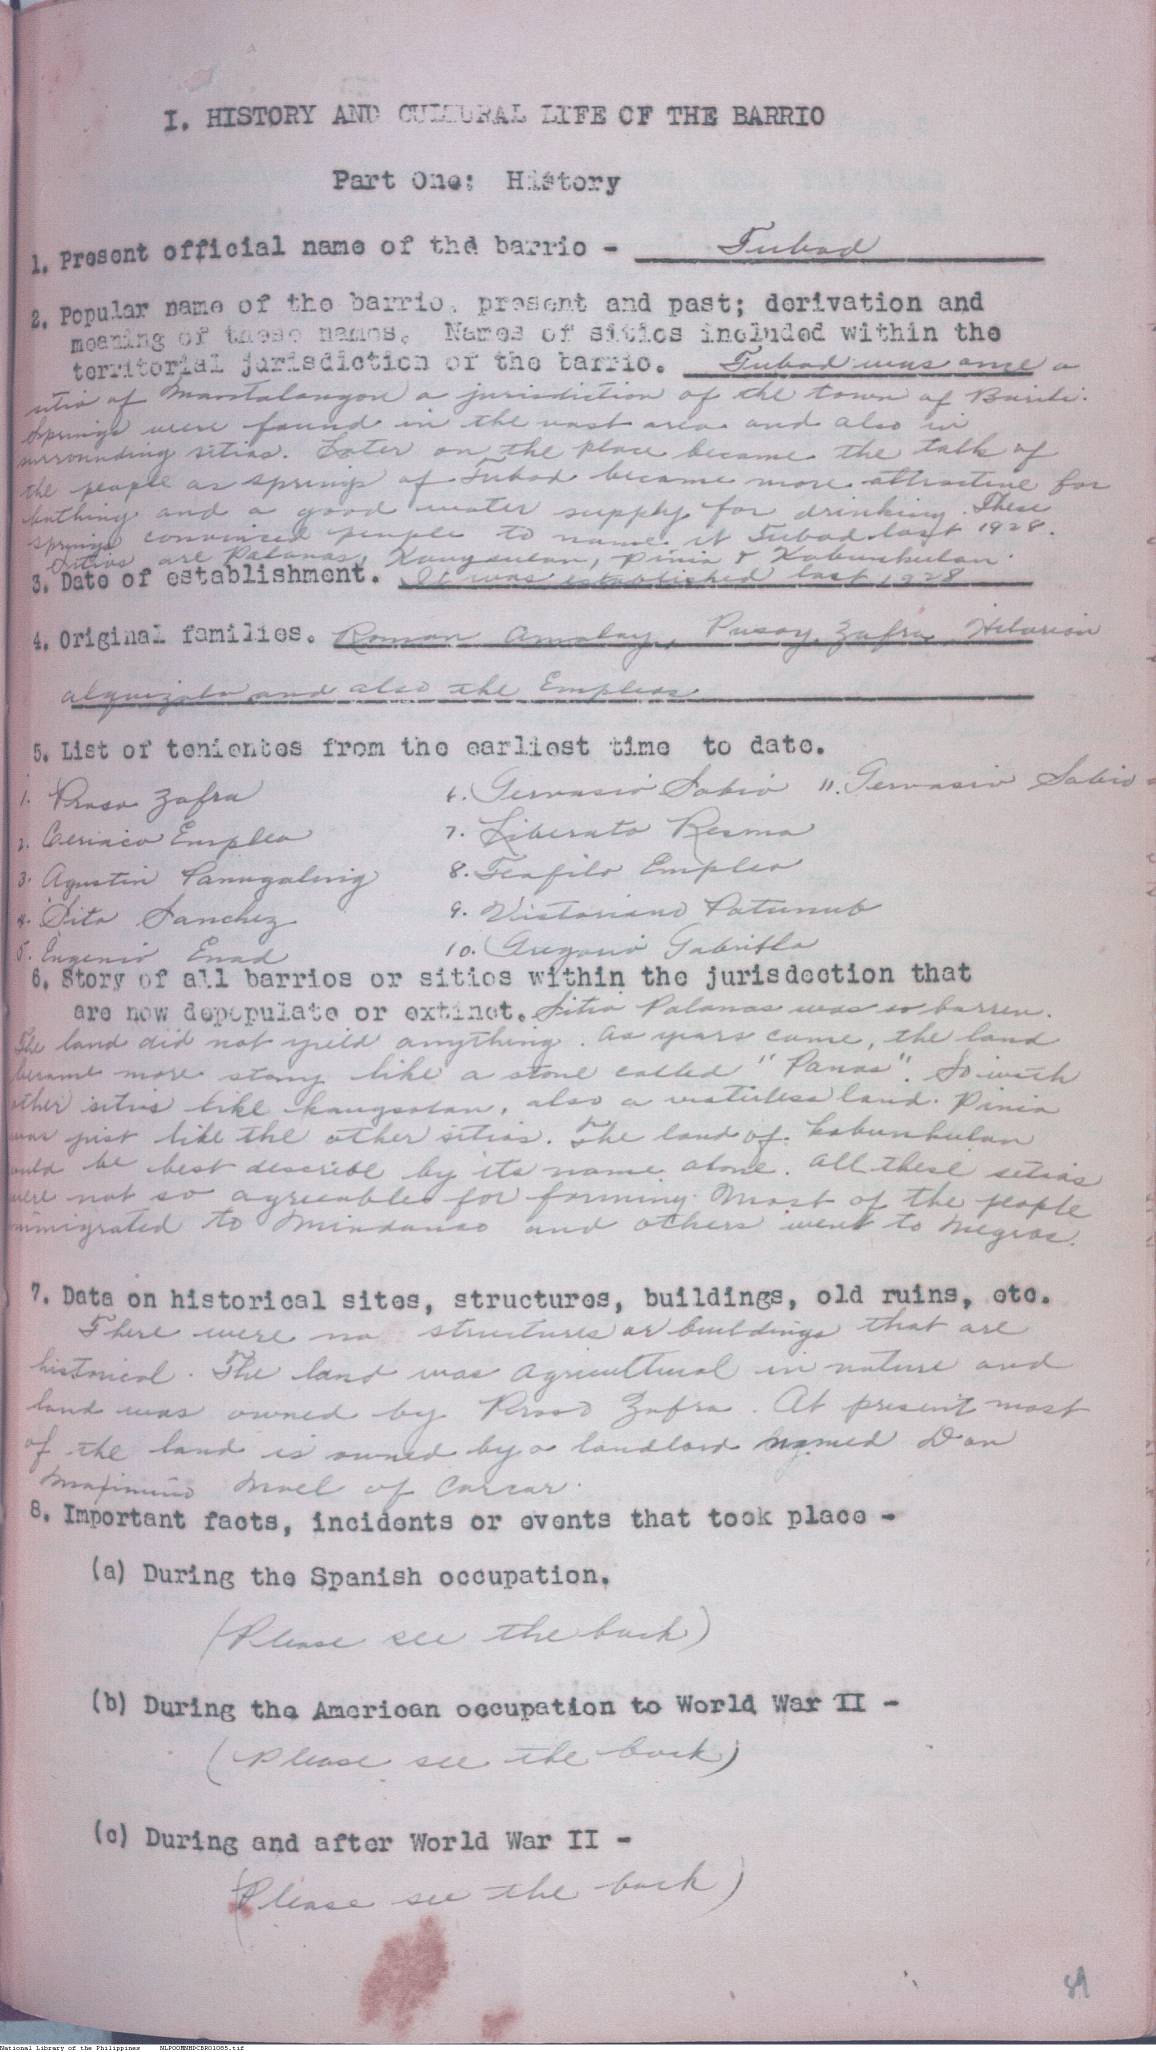 I. HISTORY AND CULTURAL LIFE OF THE BARRIO
Part One: History
1. Present official name of the barrio - Tubod
2. Popular name of the barrio, present and past; derivation and
meaning of these names. Names of sitios included within the
territorial jurisdiction of the barrio. Tubod was once a
sitio of Mantalongon a jurisdiction of the town of Barili.
Springs were found in the vast area and also in
surrounding sitios. Later on the place became the talk of
the people as springs of Tubod became more attractive for
bathing and a good water supply for drinking. These
springs convinced people to name it Tubod last 1928.
Sitios are Palanas, Kangsulan, Pinia & Kabunbulan.
3. Date of establishment. It was established last 1928
4. Original families. Roman Amolay, Pusoy Zafra, Hilarion
Alquizola and also the Empleos
5. List of tenientes from the earliest time to date.
1. Zafra
2. Ceriaco Empleo
3. Agustin
4. Tito Sanchez
5. Eugenio Enad
6. Gervasio Sabio
7. Liberato Resma
8. Teofilo Empleo
9. Victoriano Patunub
10. Gregorio
11. Gervasio Sabio
6. Story of all barrios or sitios within the jurisdection that
are now depopulate or extinct. Sitio Palanas was so barren.
The land did not yield anything. As years came, the land
became more stony like a stone called "Panas". So with
other sitios like kangsolan, also a waterless land. Pinia
was just like the other sitios. The land of Kabunbulan
could be best describe by its name alone. All these sitios
were not so agreeable for farming. Most of the people
immigrated to Mindanao and others went to Negros.
7. Data on historical sites, structures, buildings, old ruins, etc.
There were no structures or buildings that are
historical. The land was agricultural in nature and
land was owned by Zafra. At present most
of the land is owned by a landlord named Don
Maximino Noel of Carcar.
8. Important facts, incidents or events that took place -
(a) During the Spanish occupation.
(Please see the back)
(b) During the American occupation to World War II -
(Please see the back)
(c) During and after World War II -
(Please see the back)
National Library of the Philippines NLPOOMNHDCBR01085.tif